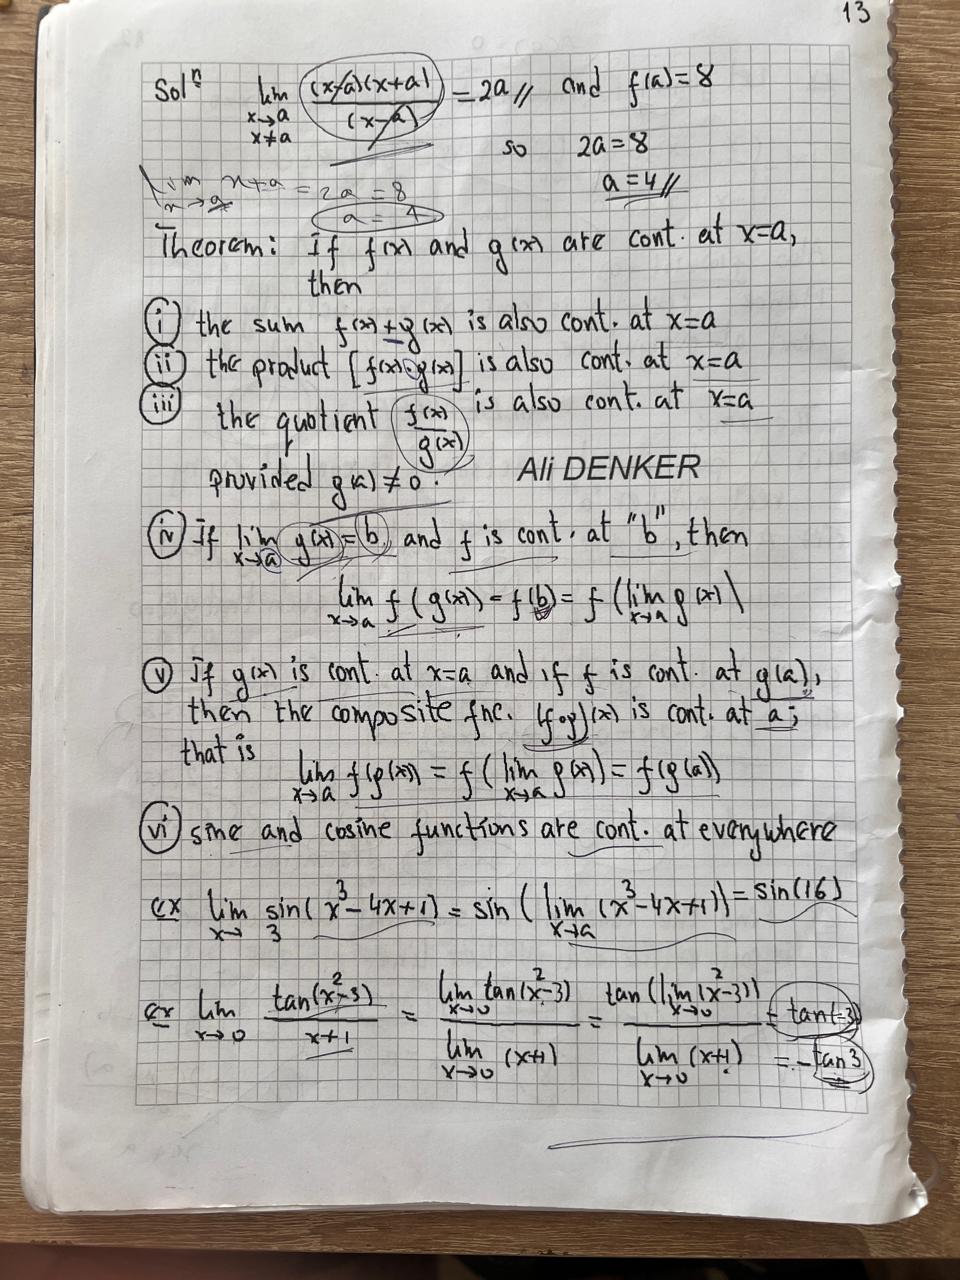 13
Solⁿ lim x→a x≠a (x-a)(x+a) / (x-a) = 2a // and f(a)=8
so 2a=8
a=4//
lim x→a x+a = 2a = 8
a = 4
Theorem: If f(x) and g(x) are cont. at x=a,
then
(i) the sum f(x)+g(x) is also cont. at x=a
(ii) the product [f(x)·g(x)] is also cont. at x=a
(iii) the quotient f(x)/g(x) is also cont. at x=a
provided g(a)≠0.
Ali DENKER
(iv) If lim x→a g(x)=b and f is cont. at "b", then
lim x→a f(g(x)) = f(b) = f(lim x→a g(x))
(v) If g(x) is cont. at x=a and if f is cont. at g(a),
then the composite fnc. (fog)(x) is cont. at a;
that is
lim x→a f(g(x)) = f(lim x→a g(x)) = f(g(a))
(vi) sine and cosine functions are cont. at everywhere
ex lim x→3 sin(x³-4x+1) = sin(lim x→a (x³-4x+1)) = sin(16)
ex lim x→0 tan(x²-3) / x+1 = lim x→0 tan(x²-3) / lim x→0 (x+1) = tan(lim x→0 (x²-3)) / lim x→0 (x+1) = tan(-3)
= -tan3